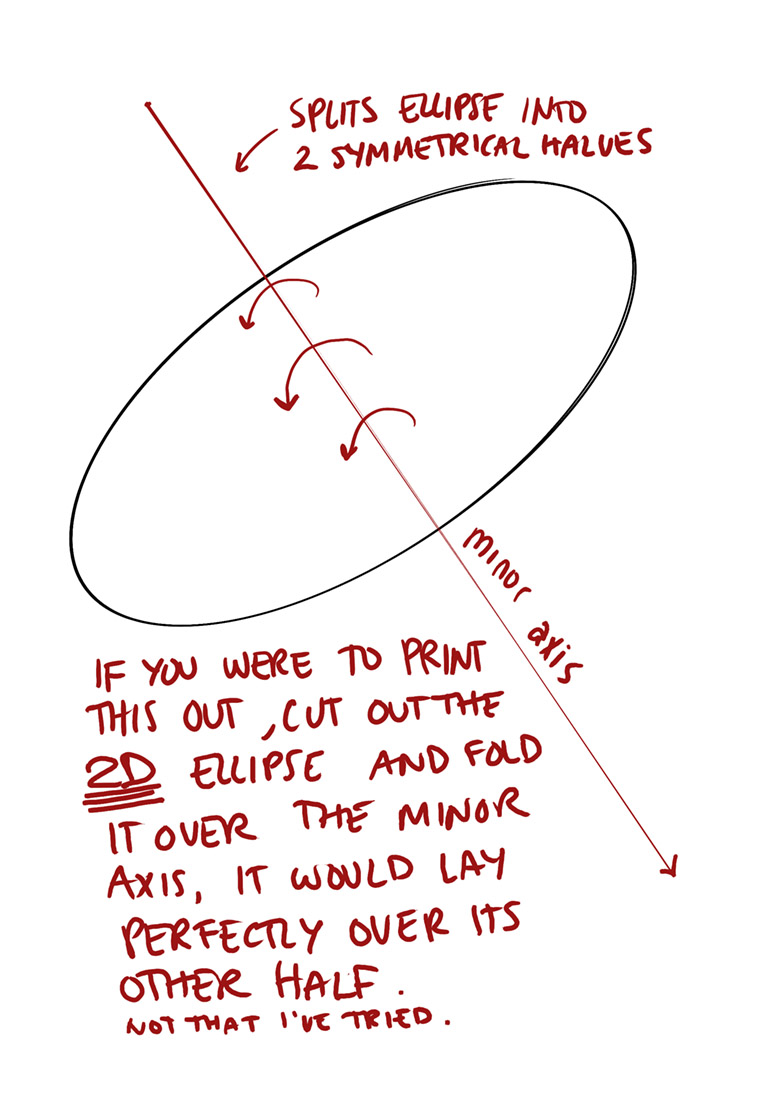 SPLITS ELLIPSE INTO
2 SYMMETRICAL HALVES
minor axis
IF YOU WERE TO PRINT
THIS OUT, CUT OUT THE
2D ELLIPSE AND FOLD
IT OVER THE MINOR
AXIS, IT WOULD LAY
PERFECTLY OVER ITS
OTHER HALF.
NOT THAT I'VE TRIED.